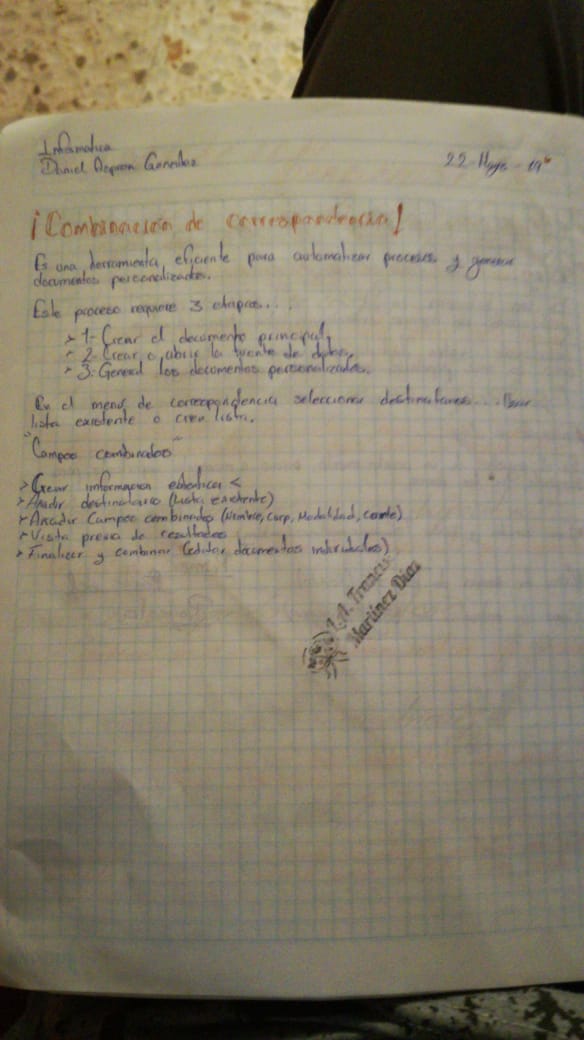 Informatica
Daniel González
22-Mayo-19
¡Combinación de correspondencia!
Es una herramienta, eficiente para automatizar procesos y generar
documentos personalizados.
Este proceso requiere 3 etapas...
> 1-Crear el documento principal,
> 2-Crear o abrir la fuente de datos,
> 3-Generar los documentos personalizados.
En el menú de correspondencia seleccionar destinatarios... Usar
lista existente o crear lista.
"Campos combinados"
>Crear informacion estatica <
>Añadir destinatario (Lista existente)
>Campos combinados (Nombre, Modalidad,
>Vista previa de resultados
>Finalizar y combinar (editar documentos individuales)
Martínez Díaz